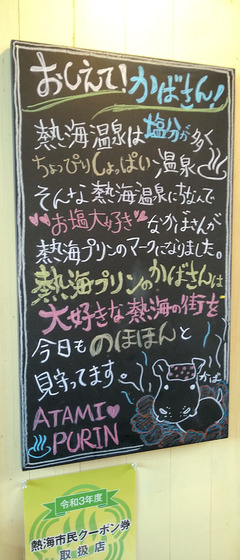 おしえて！かばさん！
熱海温泉は塩分が多く
ちょっぴりしょっぱい温泉♨
そんな熱海温泉にちなんで
♥♥お塩大好き♥なかばさんが
熱海プリンのマークになりました。
熱海プリンのかばさんは
大好きな熱海の街を
今日ものほほんと
見守ってます。
かば
ATAMI♥
♨PURIN
令和3年度
熱海市民クーポン券
取扱店